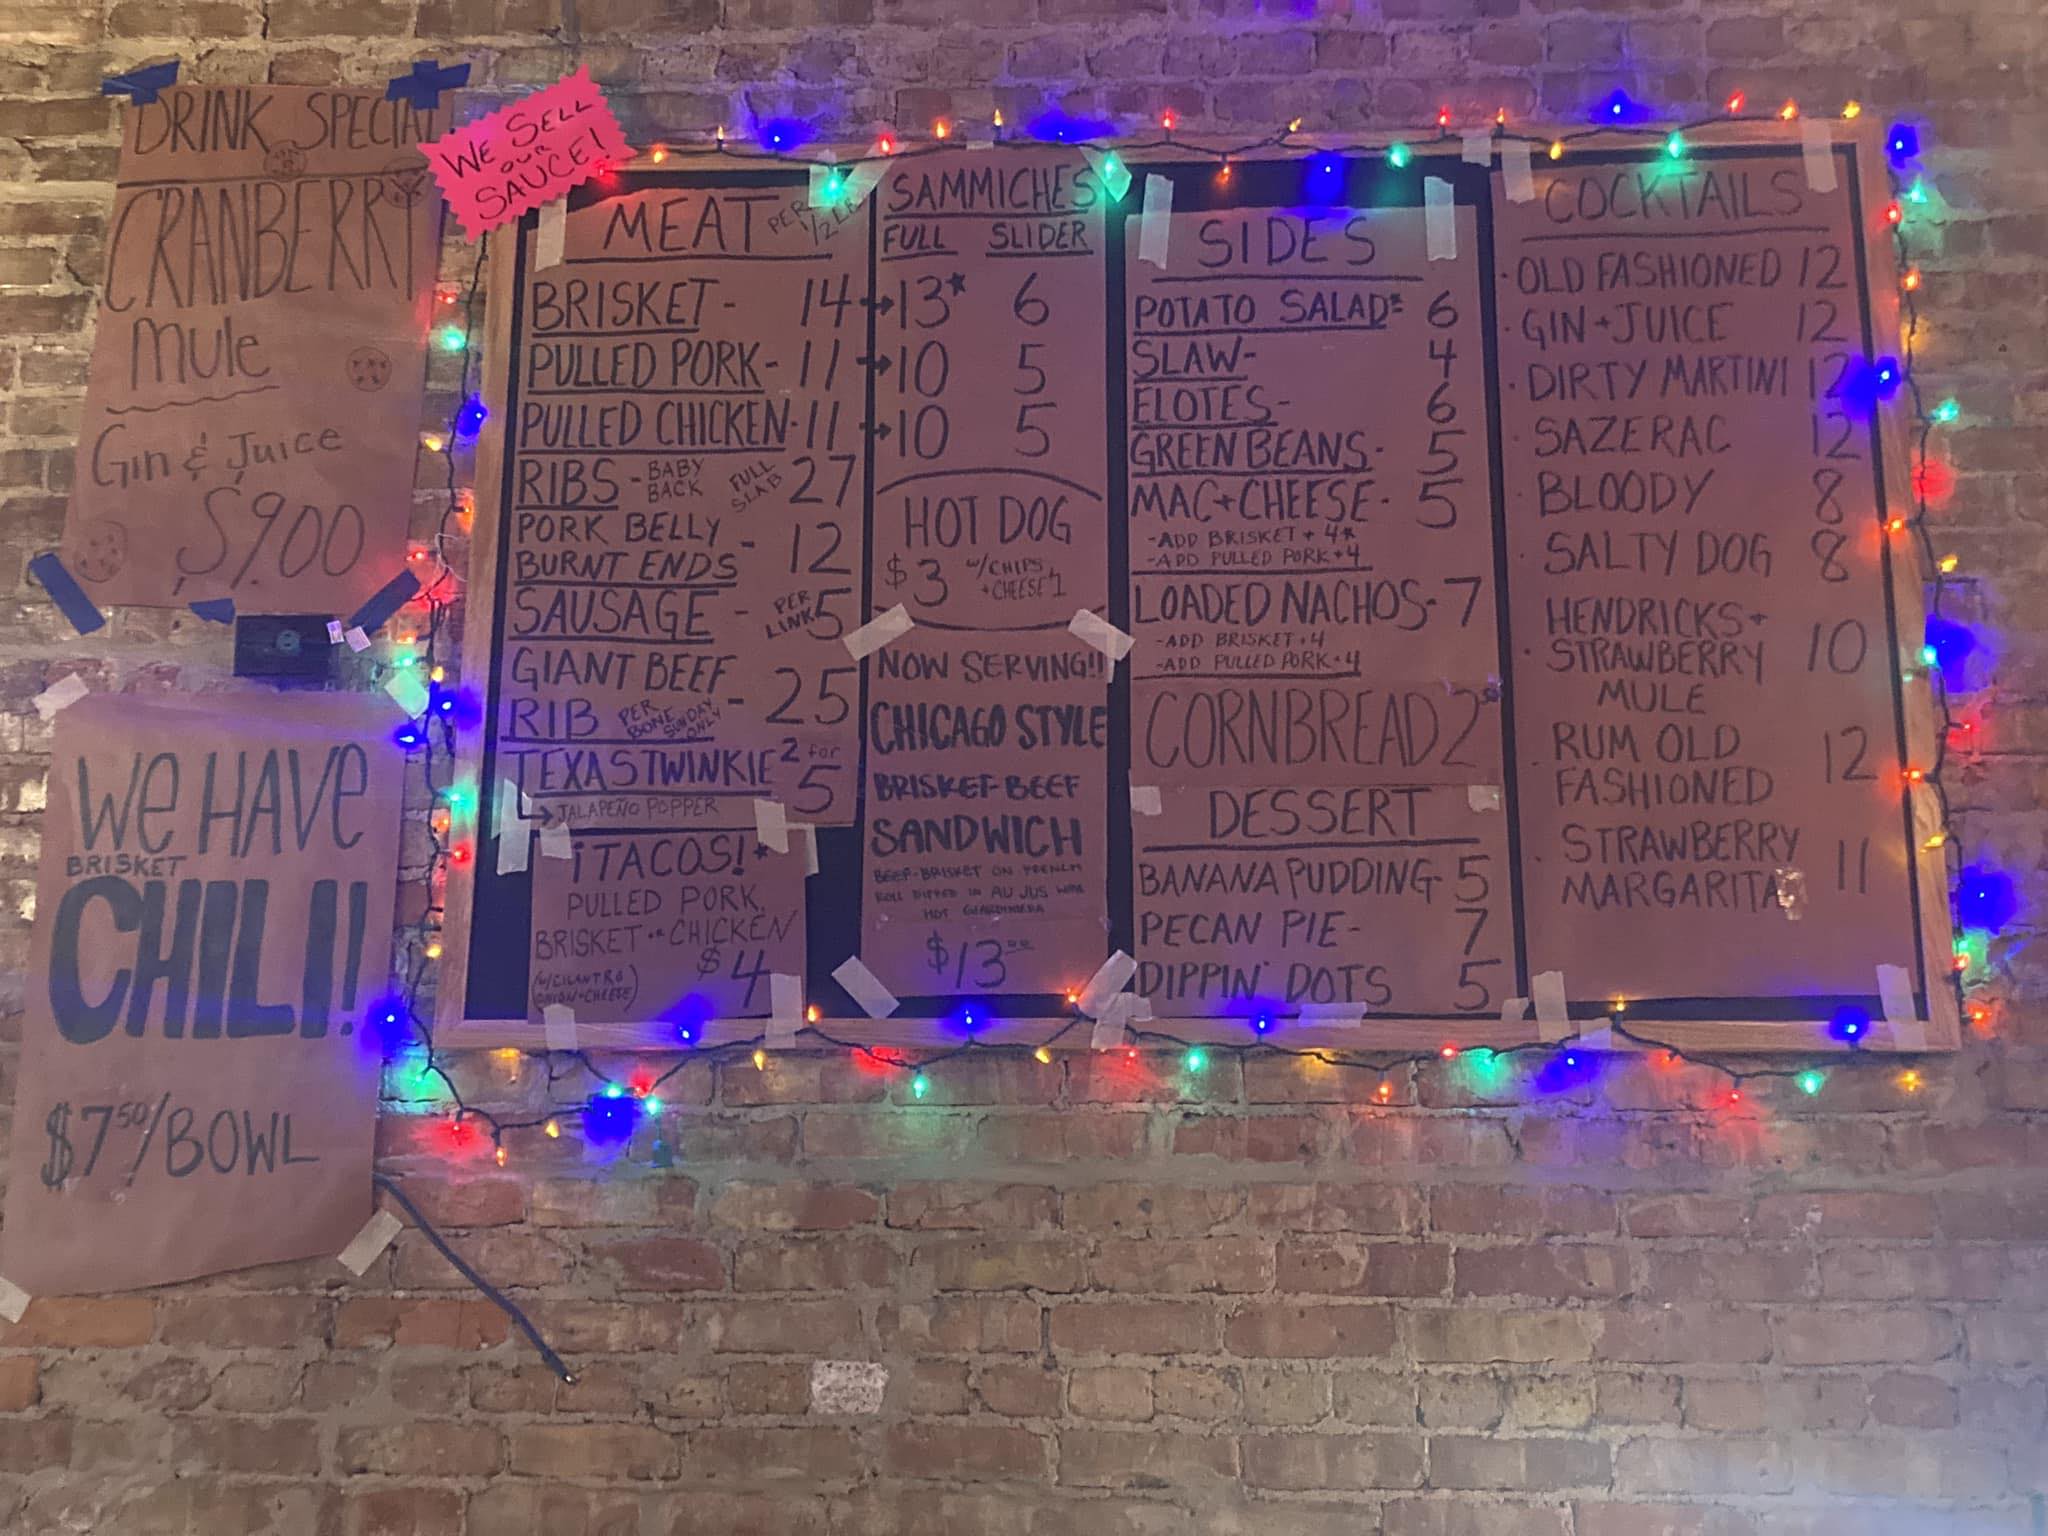 DRINK SPECIAL
CRANBERRY
Mule
Gin & Juice
$9.00
WE SELL
OUR
SAUCE!
WE HAVE
BRISKET
CHILI!!
$7.50/BOWL
MEAT PER 1/2 LB
BRISKET - 14
PULLED PORK - 11
PULLED CHICKEN - 11
RIBS - BABY BACK FULL SLAB 27
PORK BELLY
BURNT ENDS - 12
SAUSAGE - PER LINK 5
GIANT BEEF
RIB PER BONE SUNDAY ONLY - 25
TEXAS TWINKIE 2 for 5
JALAPEÑO POPPER
¡TACOS!*
PULLED PORK,
BRISKET or CHICKEN
(W/CILANTRO
ONION + CHEESE) $4
SAMMICHES
FULL SLIDER
→ 13* 6
→ 10 5
→ 10 5
HOT DOG
$3 W/CHIPS
+CHEESE $1
NOW SERVING!!
CHICAGO STYLE
BRISKET-BEEF
SANDWICH
BEEF-BRISKET ON FRENCH
ROLL DIPPED IN AU JUS
HOT GIARDINIERA
$13.00
SIDES
POTATO SALAD - 6
SLAW - 4
ELOTES - 6
GREEN BEANS - 5
MAC + CHEESE - 5
-ADD BRISKET + 4*
-ADD PULLED PORK + 4
LOADED NACHOS - 7
-ADD BRISKET + 4
-ADD PULLED PORK + 4
CORNBREAD 2.50
DESSERT
BANANA PUDDING - 5
PECAN PIE - 7
DIPPIN' DOTS 5
COCKTAILS
· OLD FASHIONED 12
· GIN + JUICE 12
· DIRTY MARTINI 12
· SAZERAC 12
· BLOODY 8
· SALTY DOG 8
HENDRICKS +
· STRAWBERRY 10
MULE
RUM OLD
· FASHIONED 12
· STRAWBERRY
MARGARITA 11